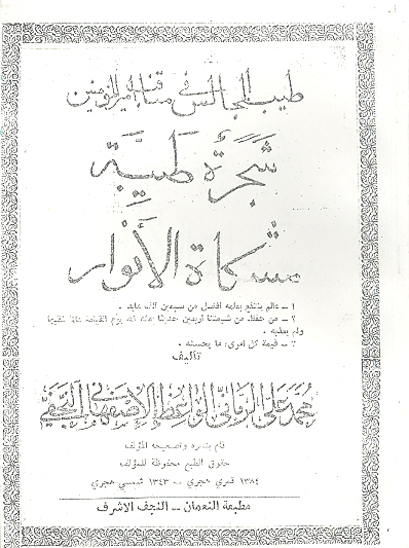 طيب المجالس في مناقب أمير المؤمنين
شَجَرَة طَيِّبَة
مشكاة الأنوار
١ ـ عالم ينتفع بعلمه افضل من سبعين الف عابد .
٢ ـ من حفظ من شيعتنا اربعين حديثا بعثه الله يوم القيامة عالما فقيها
ولم يعذبه .
٣ ـ قيمة كل امرىء ما يحسنه .
تأليف
محمد علي الواعظ الاصفهاني النجفي
قام بنشره وتصحيحه المؤلف
حقوق الطبع محفوظة للمؤلف
١٣٨٤ قمري هجري ــ ١٣٤٣ شمسي هجري
مطبعة النعمان ــ النجف الاشرف